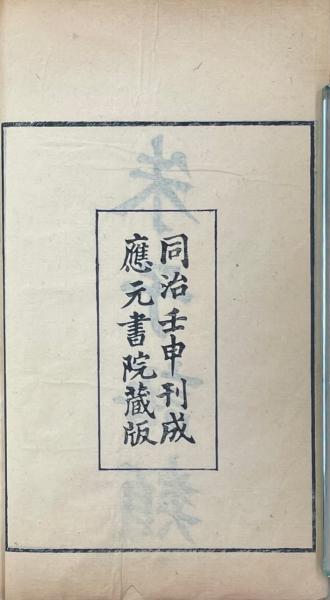 同治壬申刊成
應元書院藏版